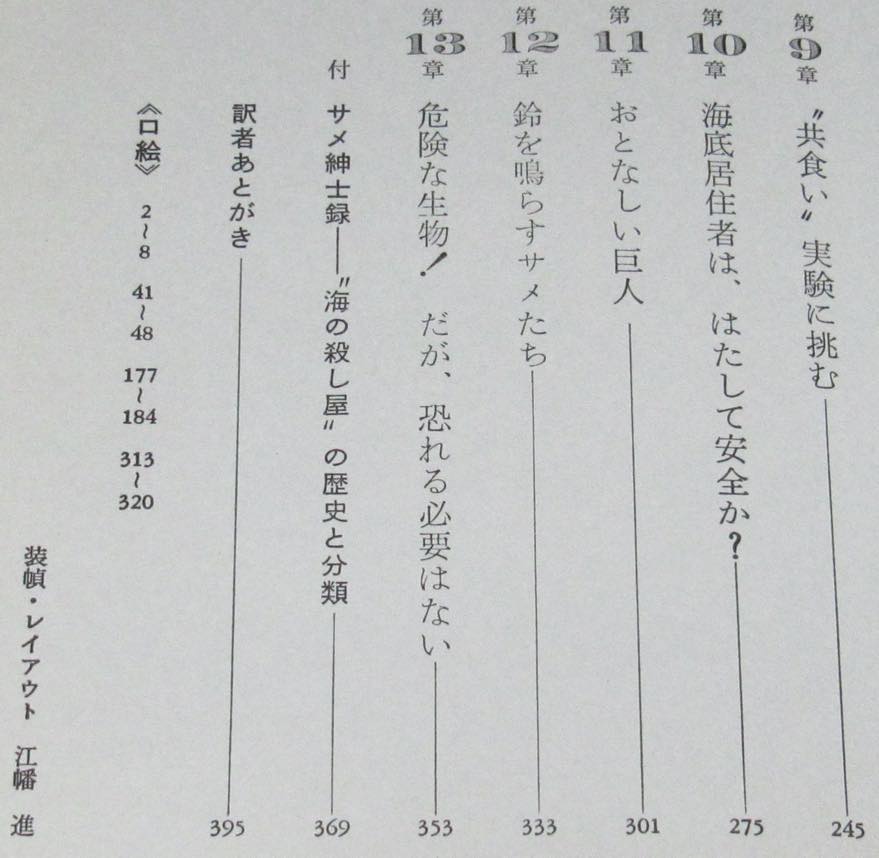 第9章 〝共食い〟実験に挑む 245
第10章 海底居住者は、はたして安全か? 275
第11章 おとなしい巨人 301
第12章 鈴を鳴らすサメたち 333
第13章 危険な生物! だが、恐れる必要はない 353
付 サメ紳士録――〝海の殺し屋〟の歴史と分類 369
訳者あとがき 395
《口絵》 2~8 41~48 177~184 313~320
装幀・レイアウト 江幡 進